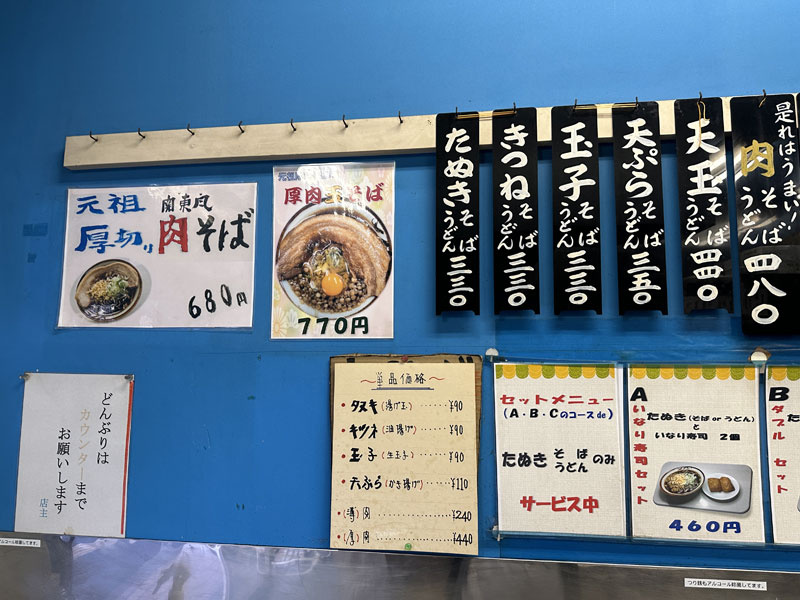 元祖 関東風
厚切り肉そば
680円
厚肉玉そば
770円
たぬきそばうどん三三〇
きつねそばうどん三三〇
玉子そばうどん三三〇
天ぷらそばうどん三五〇
天玉そばうどん四四〇
是れはうまい!
肉そばうどん四八〇
どんぶりは
カウンターまで
お願いします
店主
単品価格
タヌキ(揚げ玉)……¥90
キツネ(油揚げ)……¥90
玉子(生玉子)……¥90
天ぷら(かき揚げ)……¥110
(薄)肉……¥240
(厚)肉……¥440
セットメニュー
(A・B・Cのコースde)
たぬき そばうどん のみ
サービス中
A
いなり寿司セット
たぬき(そば or うどん)
と
いなり寿司 2個
460円
B
ダブルセット
アルコール除菌してます。
つり銭もアルコール除菌してます。